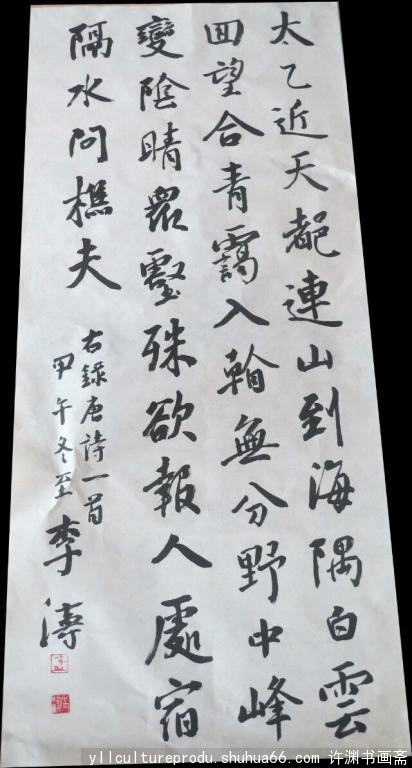 太乙近天都連山到海隅白雲
回望合青靄入無分野中峰
變陰晴衆壑殊欲報人處宿
隔水問樵夫
右錄唐詩一首
甲午冬至李濤
yllcultureprodu.shuhua66.com 许渊书画斋